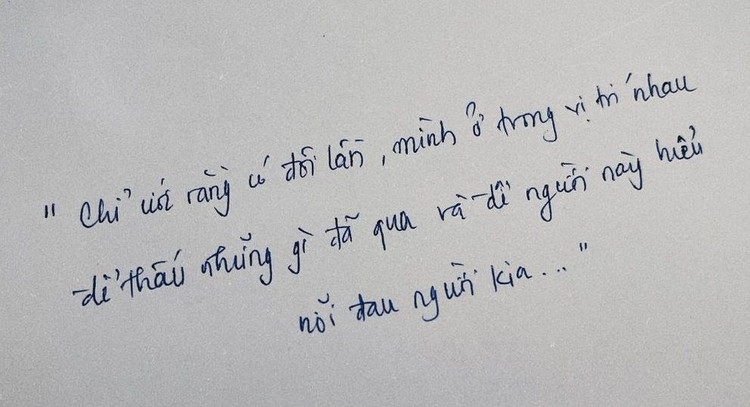 "Chỉ ước rằng có đôi lần, mình ở trong vị trí nhau
để thấu những gì đã qua và để người này hiểu
nỗi đau người kia..."